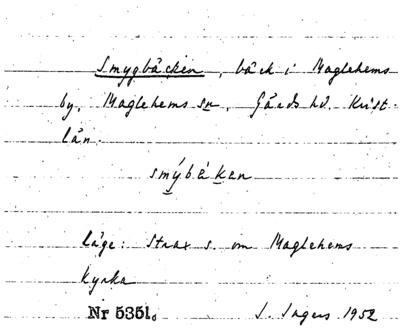 Smygbäcken, bäck i Maglehems
by, Maglehems sn, Gärds hd. Krist.
län.
smýbèken
läge: Strax s. om Maglehems
Kyrka
Nr 5351. I. Ingers 1952